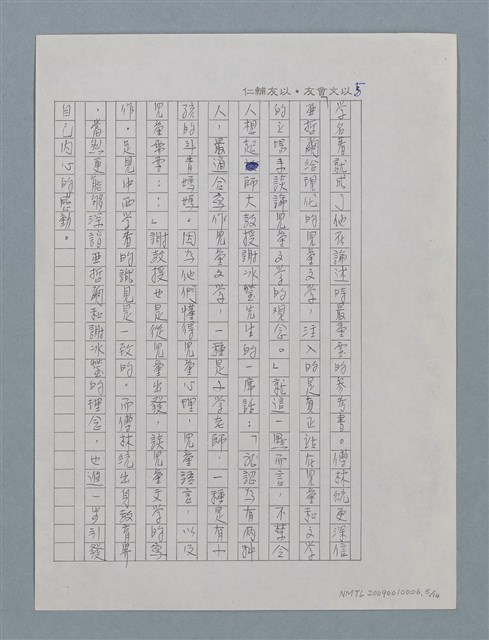 以文會友・以友輔仁 5
學名著就成了他在論述時最重要的參考書。傅林統更深信
亞哲爾給現代的兒童文學,注入的是真正站在兒童和文學
的立場來談論兒童文學的觀念。」就這一點而言,不禁令
人想起師大教授謝冰瑩先生的一席話:「我認為有兩種
人,最適合寫作兒童文學,一種是小學老師,一種是有小
孩的年青媽媽。因為他們懂得兒童心理,兒童語言,以及
兒童需要……」謝教授也是從兒童出發,談兒童文學的寫
作。足見中西學者的識見是一致的。而傅林統出身教育界
,當然更能夠深諳亞哲爾和謝冰瑩的理念,也進一步引發
自己內心的感動。
NMTL20090010006, 5/14